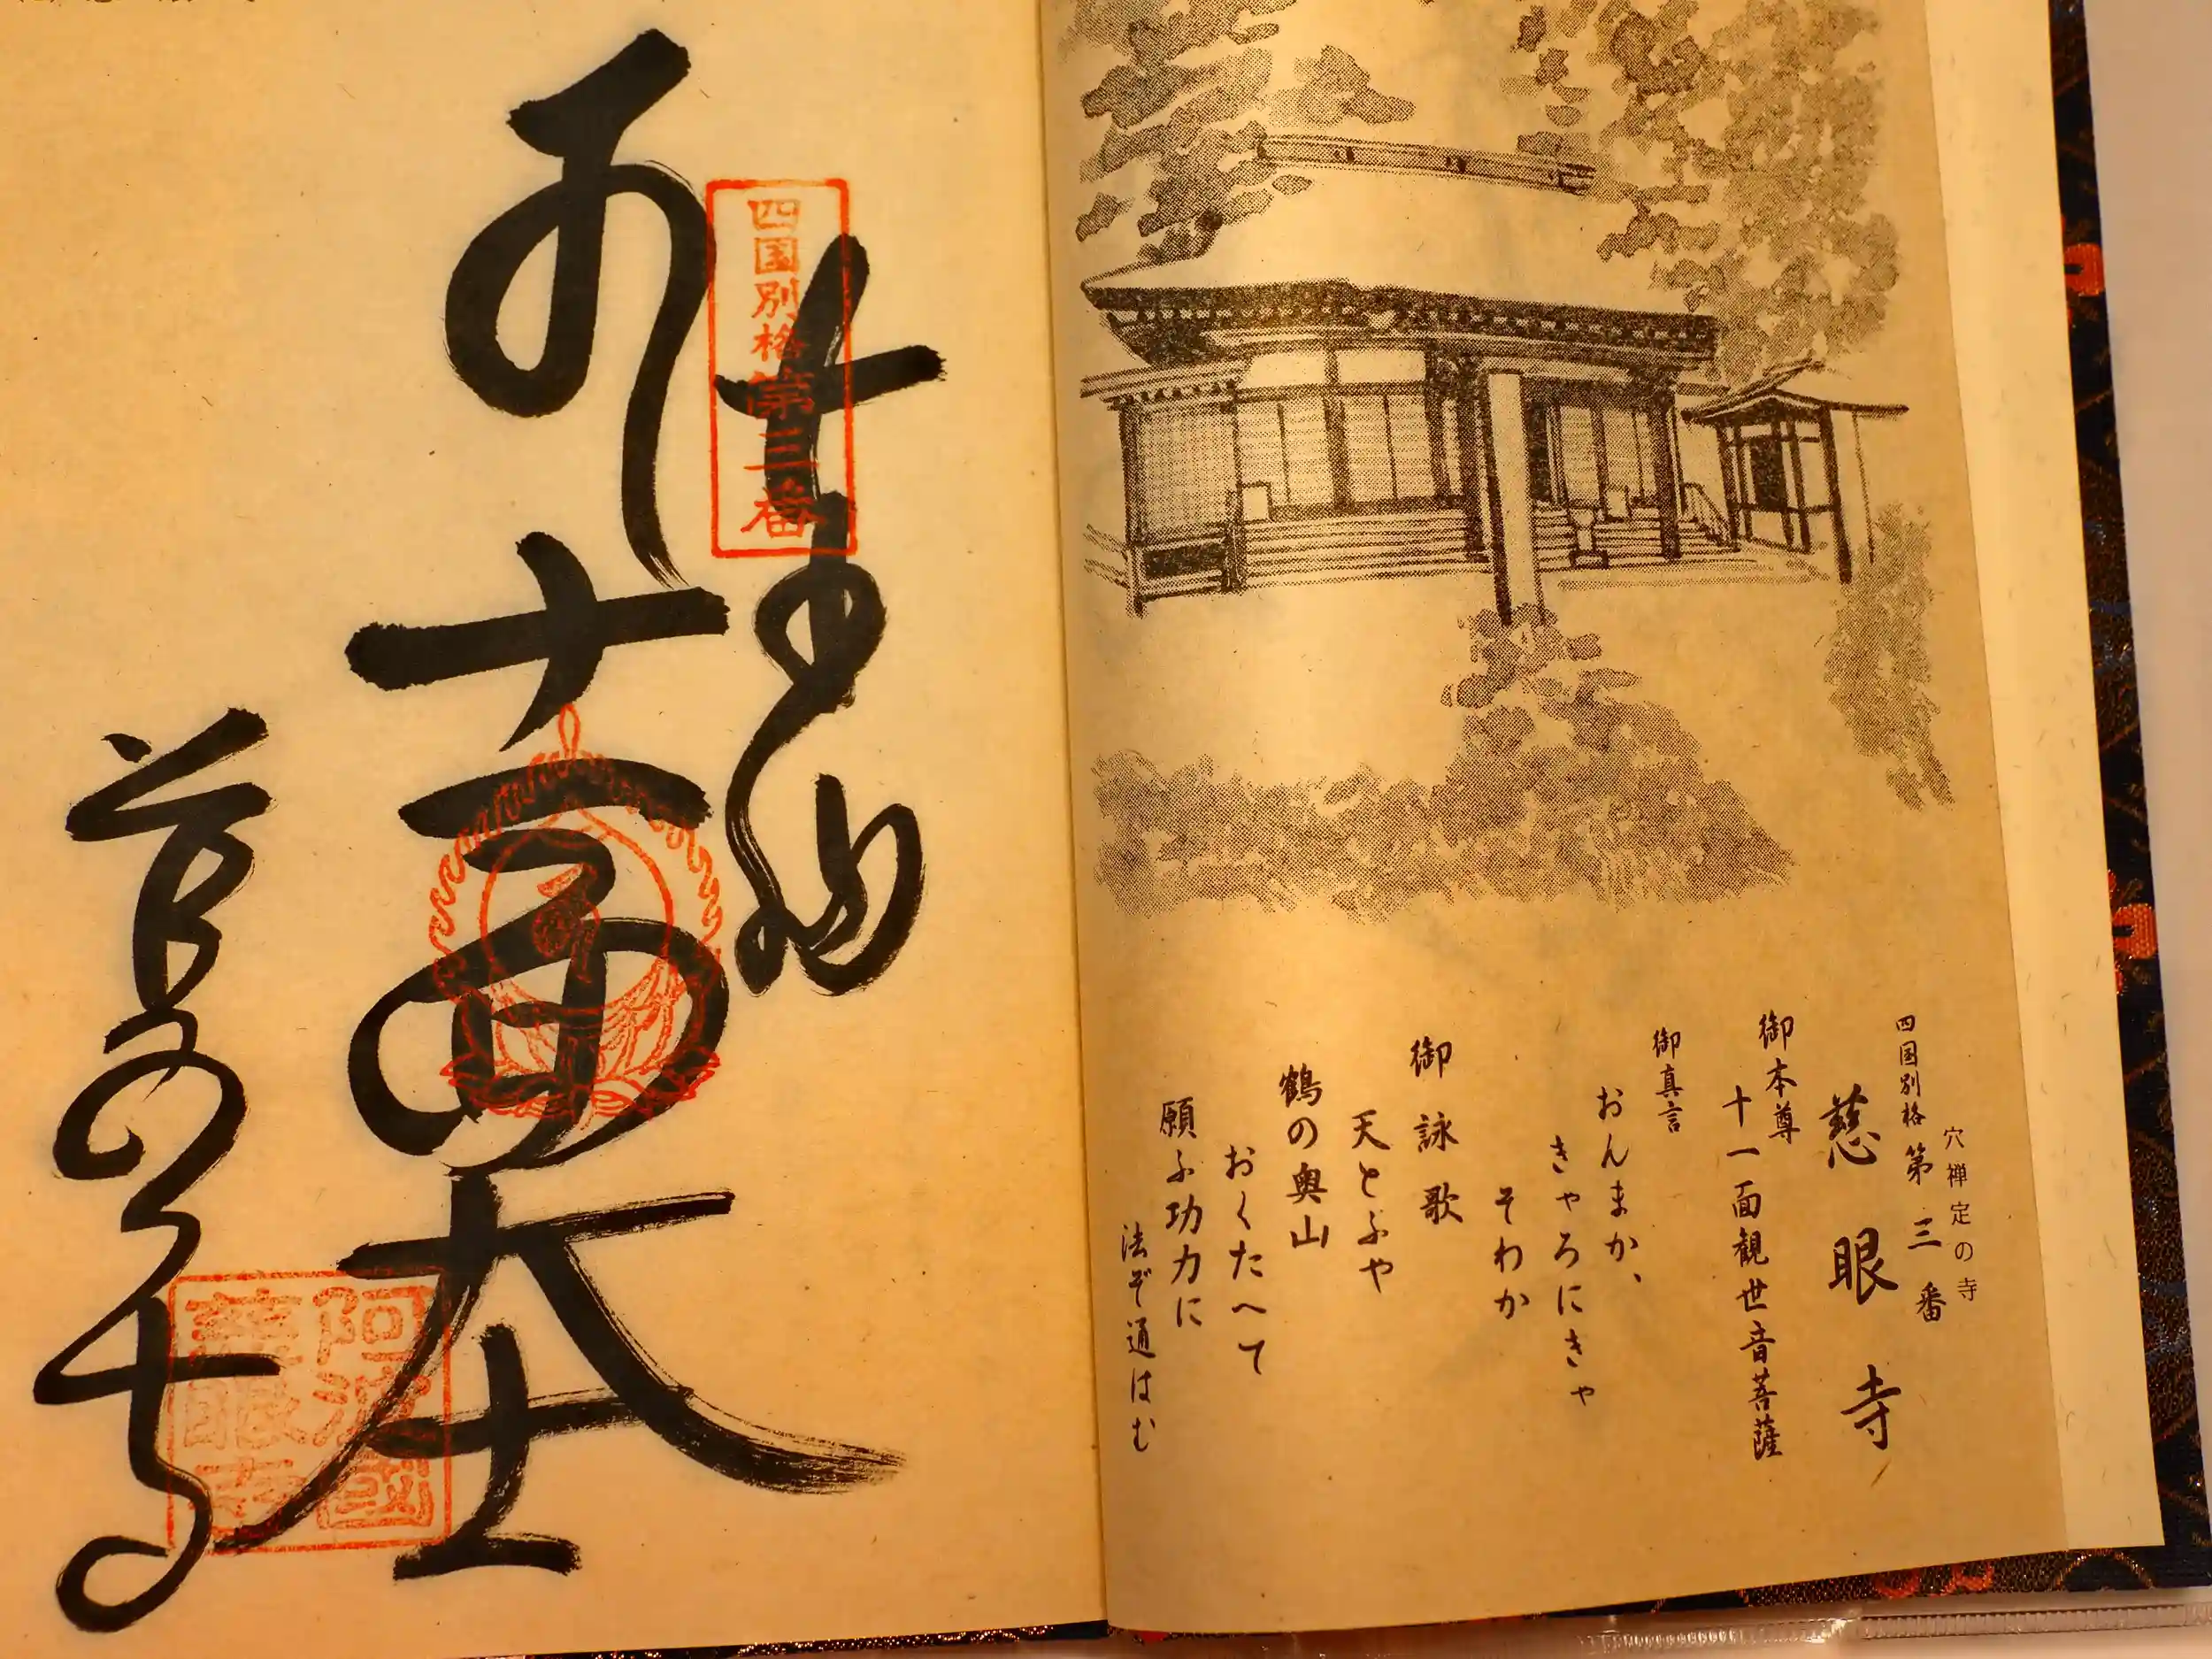 穴禅定の寺
四国別格第三番
慈眼寺
御本尊
十一面観世音菩薩
御真言
おんまか、
きゃろにきゃ
そわか
御詠歌
天とふや
鶴の奥山
おくたへて
願ふ功力に
法ぞ通はむ
四国別格第三番
奉納
十一面大士
慈眼寺
阿波國
慈眼寺